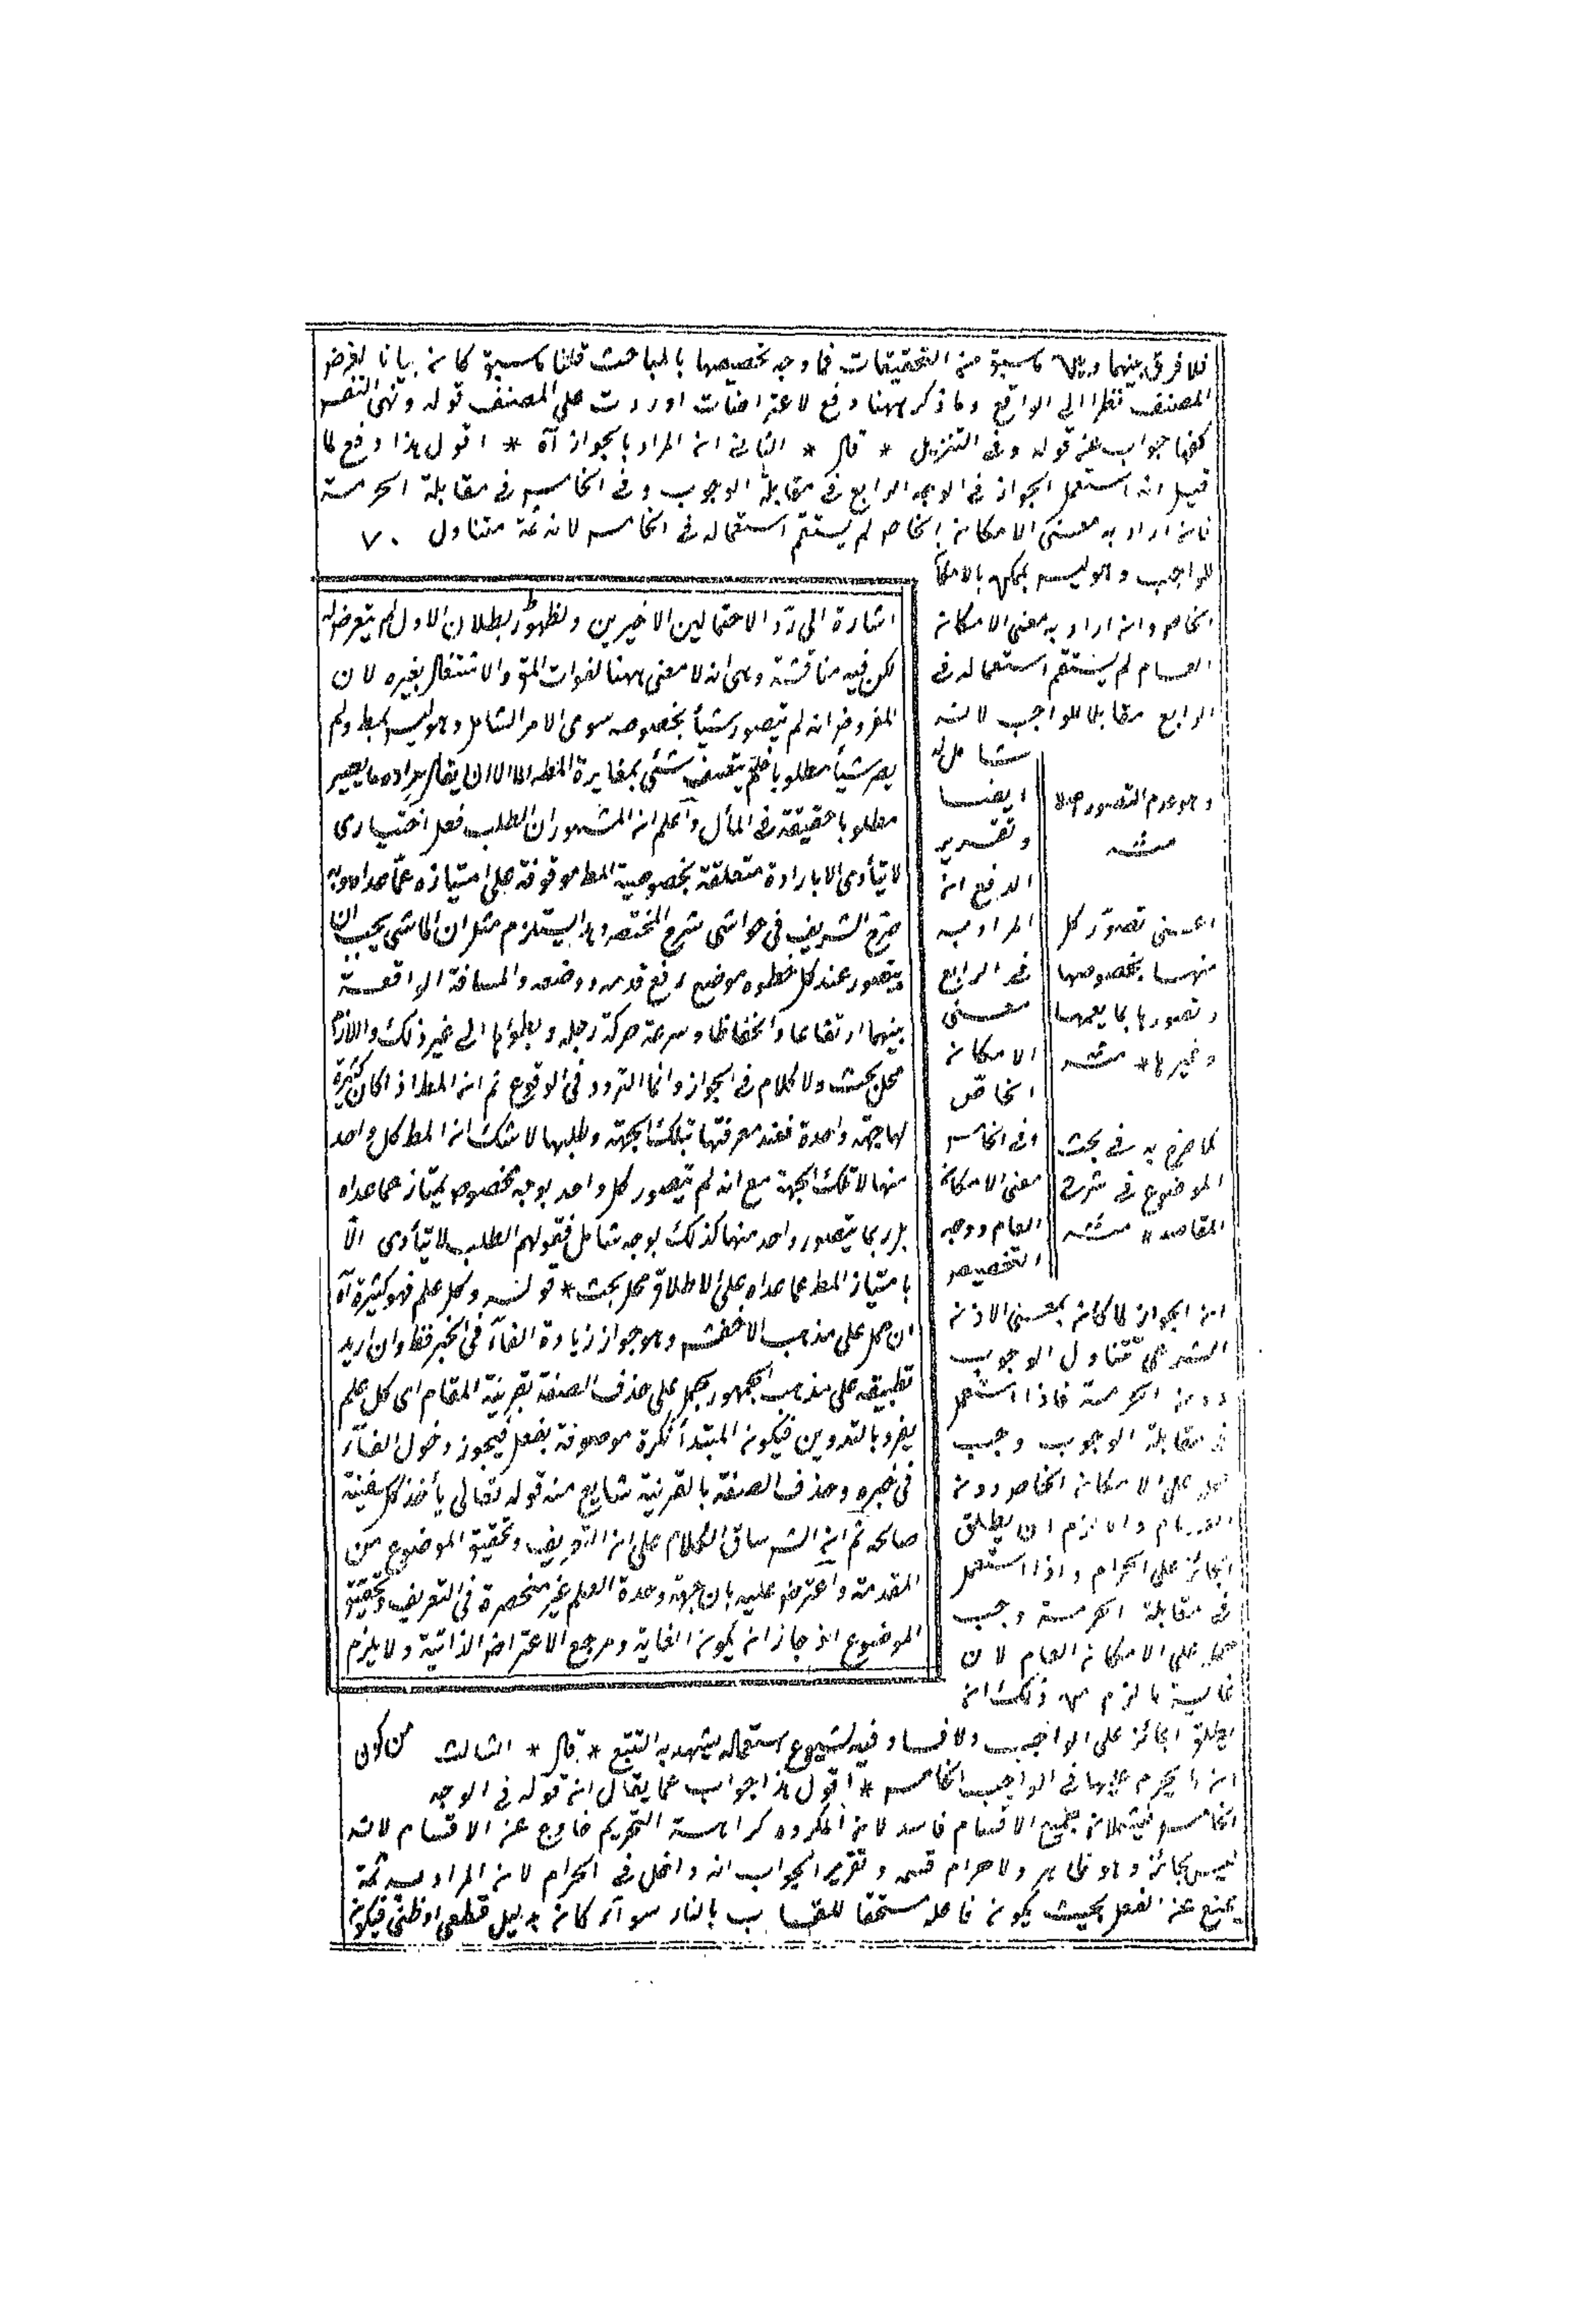 فلا فرق بينهما وبين ما سبق من التحقيقات فما وجه تخصيصها بالمباحث قلنا ما سبق كان بيانا لغرض
المصنف نظرا الى الواقع وما ذكر ههنا دفع لاعتراضات اوردت على المصنف قوله ونهى النفس
كفها جواب عن قوله وفى التنزيل * قال * الثانى ان المراد بالجواز آه * اقول هذا دفع لما
قيل انه استعمل الجواز فى الوجه الرابع فى مقابلة الوجوب وفى الخامس فى مقابلة الحرمة
فان اراد به معنى الامكان الخاص لم يستقم استعماله فى الخامس لانه ثمة متناول
للواجب وهو ليس بممكن بالامكان
الخاص وان اراد به معنى الامكان
العام لم يستقم استعماله فى
الرابع مقابلا للواجب لانه
شامل له
ايضا
وتقرير
الدفع ان
المراد به
فى الرابع
معنى
الامكان
الخاص
وفى الخامس
معنى الامكان
العام ووجه
التخصيص
ان الجواز لما كان بمعنى الاذن
الشرعى تتناول الوجوب
دون الحرمة فاذا استعمل
فى مقابلة الوجوب وجب
حمله على الامكان الخاص دون
العام والا لزم ان يطلق
الجائز على الحرام واذا استعمل
فى مقابلة الحرمة وجب
حمله على الامكان العام لان
غاية ما لزم من ذلك ان
يطلق الجائز على الواجب ولا فساد فيه لشيوع استعماله يشهد به التتبع * قال * الثالث
ان ما يحرم عليها فى الواجب الخامس * اقول هذا جواب عما يقال ان قوله فى الوجه
الخامس فيشملان جميع الاقسام فاسد لان المكروه كراهة التحريم خارج عن الاقسام لانه
ليس بجائز وهو ظاهر ولا حرام قسمه وتقرير الجواب انه داخل فى الحرام لان المراد به ثمة
يمنع عن الفعل بحيث يكون فاعله مستحقا للعقاب بالنار سوآء كان بدليل قطعى او ظنى فيكون
وهو عدم التصور اصلا
منه
اعنى تصور كل
منهما بخصوصها
وتصورها بما يعمها
وغيرها * منه
كما صرح به فى بحث
الموضوع فى شرح
المقاصد * منه
اشارة الى رد الاحتمالين الاخيرين ولظهور بطلان الاول لم يتعرض له
لكن فيه مناقشة وهى انه لا معنى ههنا لفوات المق والاشتغال بغيره لان
المفروض انه لم يتصور شيأ بخصوصه سوى الامر الشامل وهو ليس بمط ولم
يصر شيأ مطلوبا فلم يتصف شئ بمغايرة المط اللهم الا ان يقال مراده ما يصير
مطلوبا حقيقة فى المأل واعلم ان المشهور ان الطلب فعل اختيارى
لا يتأدى الا بارادة متعلقة بخصوصية المط موقوفة على امتيازه عما عداه وبه
صرح الشريف فى حواشى شرح المختصر وهذا يستلزم مثل ان الماشى يجب ان
يتصور عند كل خطوه موضع رفع قدمه ووضعه والمسافة الواقعة
بينهما ارتفاعا وانخفاظا وسرعة حركة رجله وبطؤها الى غير ذلك واللازم
محل بحث ولا كلام فى الجواز وانما التردد فى الوقوع ثم ان المط اذا كان كثيرة
لها جهة واحدة فعند معرفتها بتلك الجهة وطلبها لا شك ان المط كل واحد
منها لا تلك الجهة مع انه لم يتصور كل واحد بوجه مخصوص يمتاز عما عداه
بل ربما يتصور واحد منها كذلك بوجه شامل فقولهم الطلب لا يتأدى الا
بامتياز المط عما عداه على الاطلاق محل بحث * قوله وكل علم فهو كثيرة آه
ان حمل على مذهب الاخفش وهو جواز زيادة الفاء فى الخبر فقط وان اريد
تطبيقه على مذهب الجمهور يحمل على حذف الصفة بقرينة المقام اى كل علم
يفرد بالتدوين فيكون المبتدأ نكرة موصوفة بفعل فيجوز دخول الفاء
فى خبره وحذف الصفة بالقرينة شايع منه قوله تعالى يأخذ كل سفينة
صالحة ثم ان الش ساق الكلام على ان التعريف وتحقيق الموضوع من
المقدمة واعترض عليه بان جهة وحدة العلم غير منحصرة فى التعريف وتحقيق
الموضوع اذ جاز ان يكون الغاية ومرجع الاعتراض الذاتية ولا يلزم
من كون